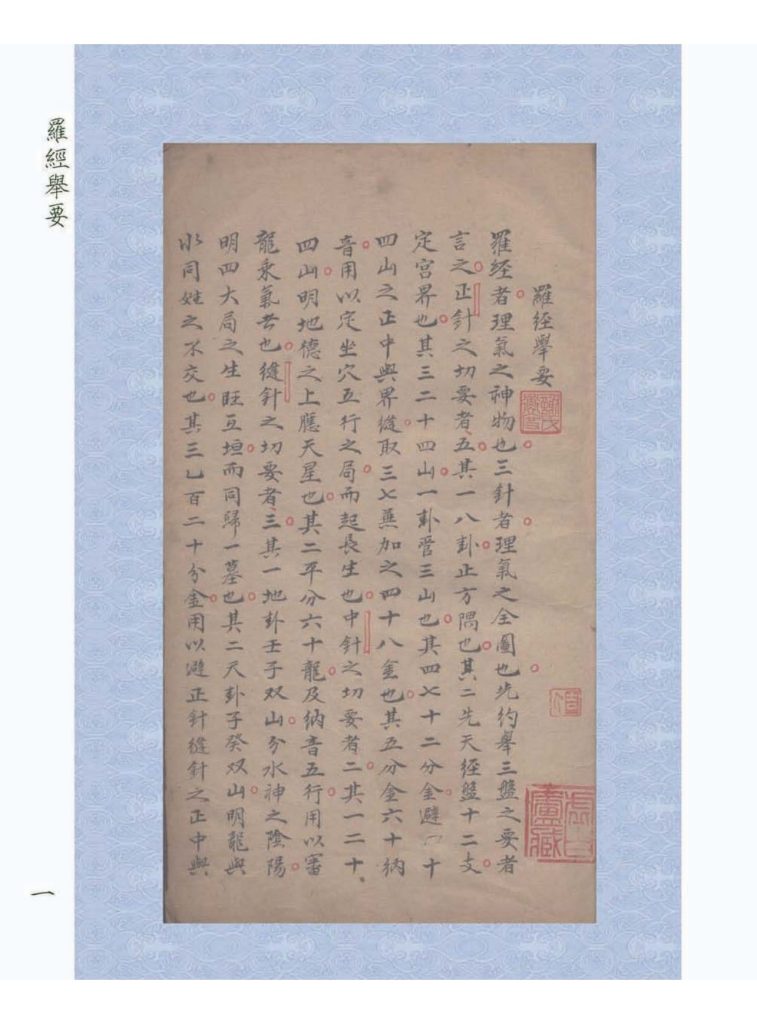 羅經舉要
一
羅經舉要
羅经者理氣之神物也三針者理氣之全圖也先约舉三盤之要者
言之正針之切要者五其一八卦止方隅也其二先天経盤十二支
定宮界也其三二十四山一卦管三山也其四七十二分金避 十
四山之正中與界縫取三七蕪加之四十八金也其五分金六十納
音用以定坐穴五行之局而起長生也中針之切要者二其一二十
四山明地德之上應天星也其二平分六十龍及納音五行用以審
龍乘氣者也縫針之切要者三其一地卦壬子双山分水神之陰陽
明四大局之生旺互垣而同歸一墓也其二天卦子癸双山明龍與
水同姓之不交也其三乙百二十分金用以避正針縫針之正中與